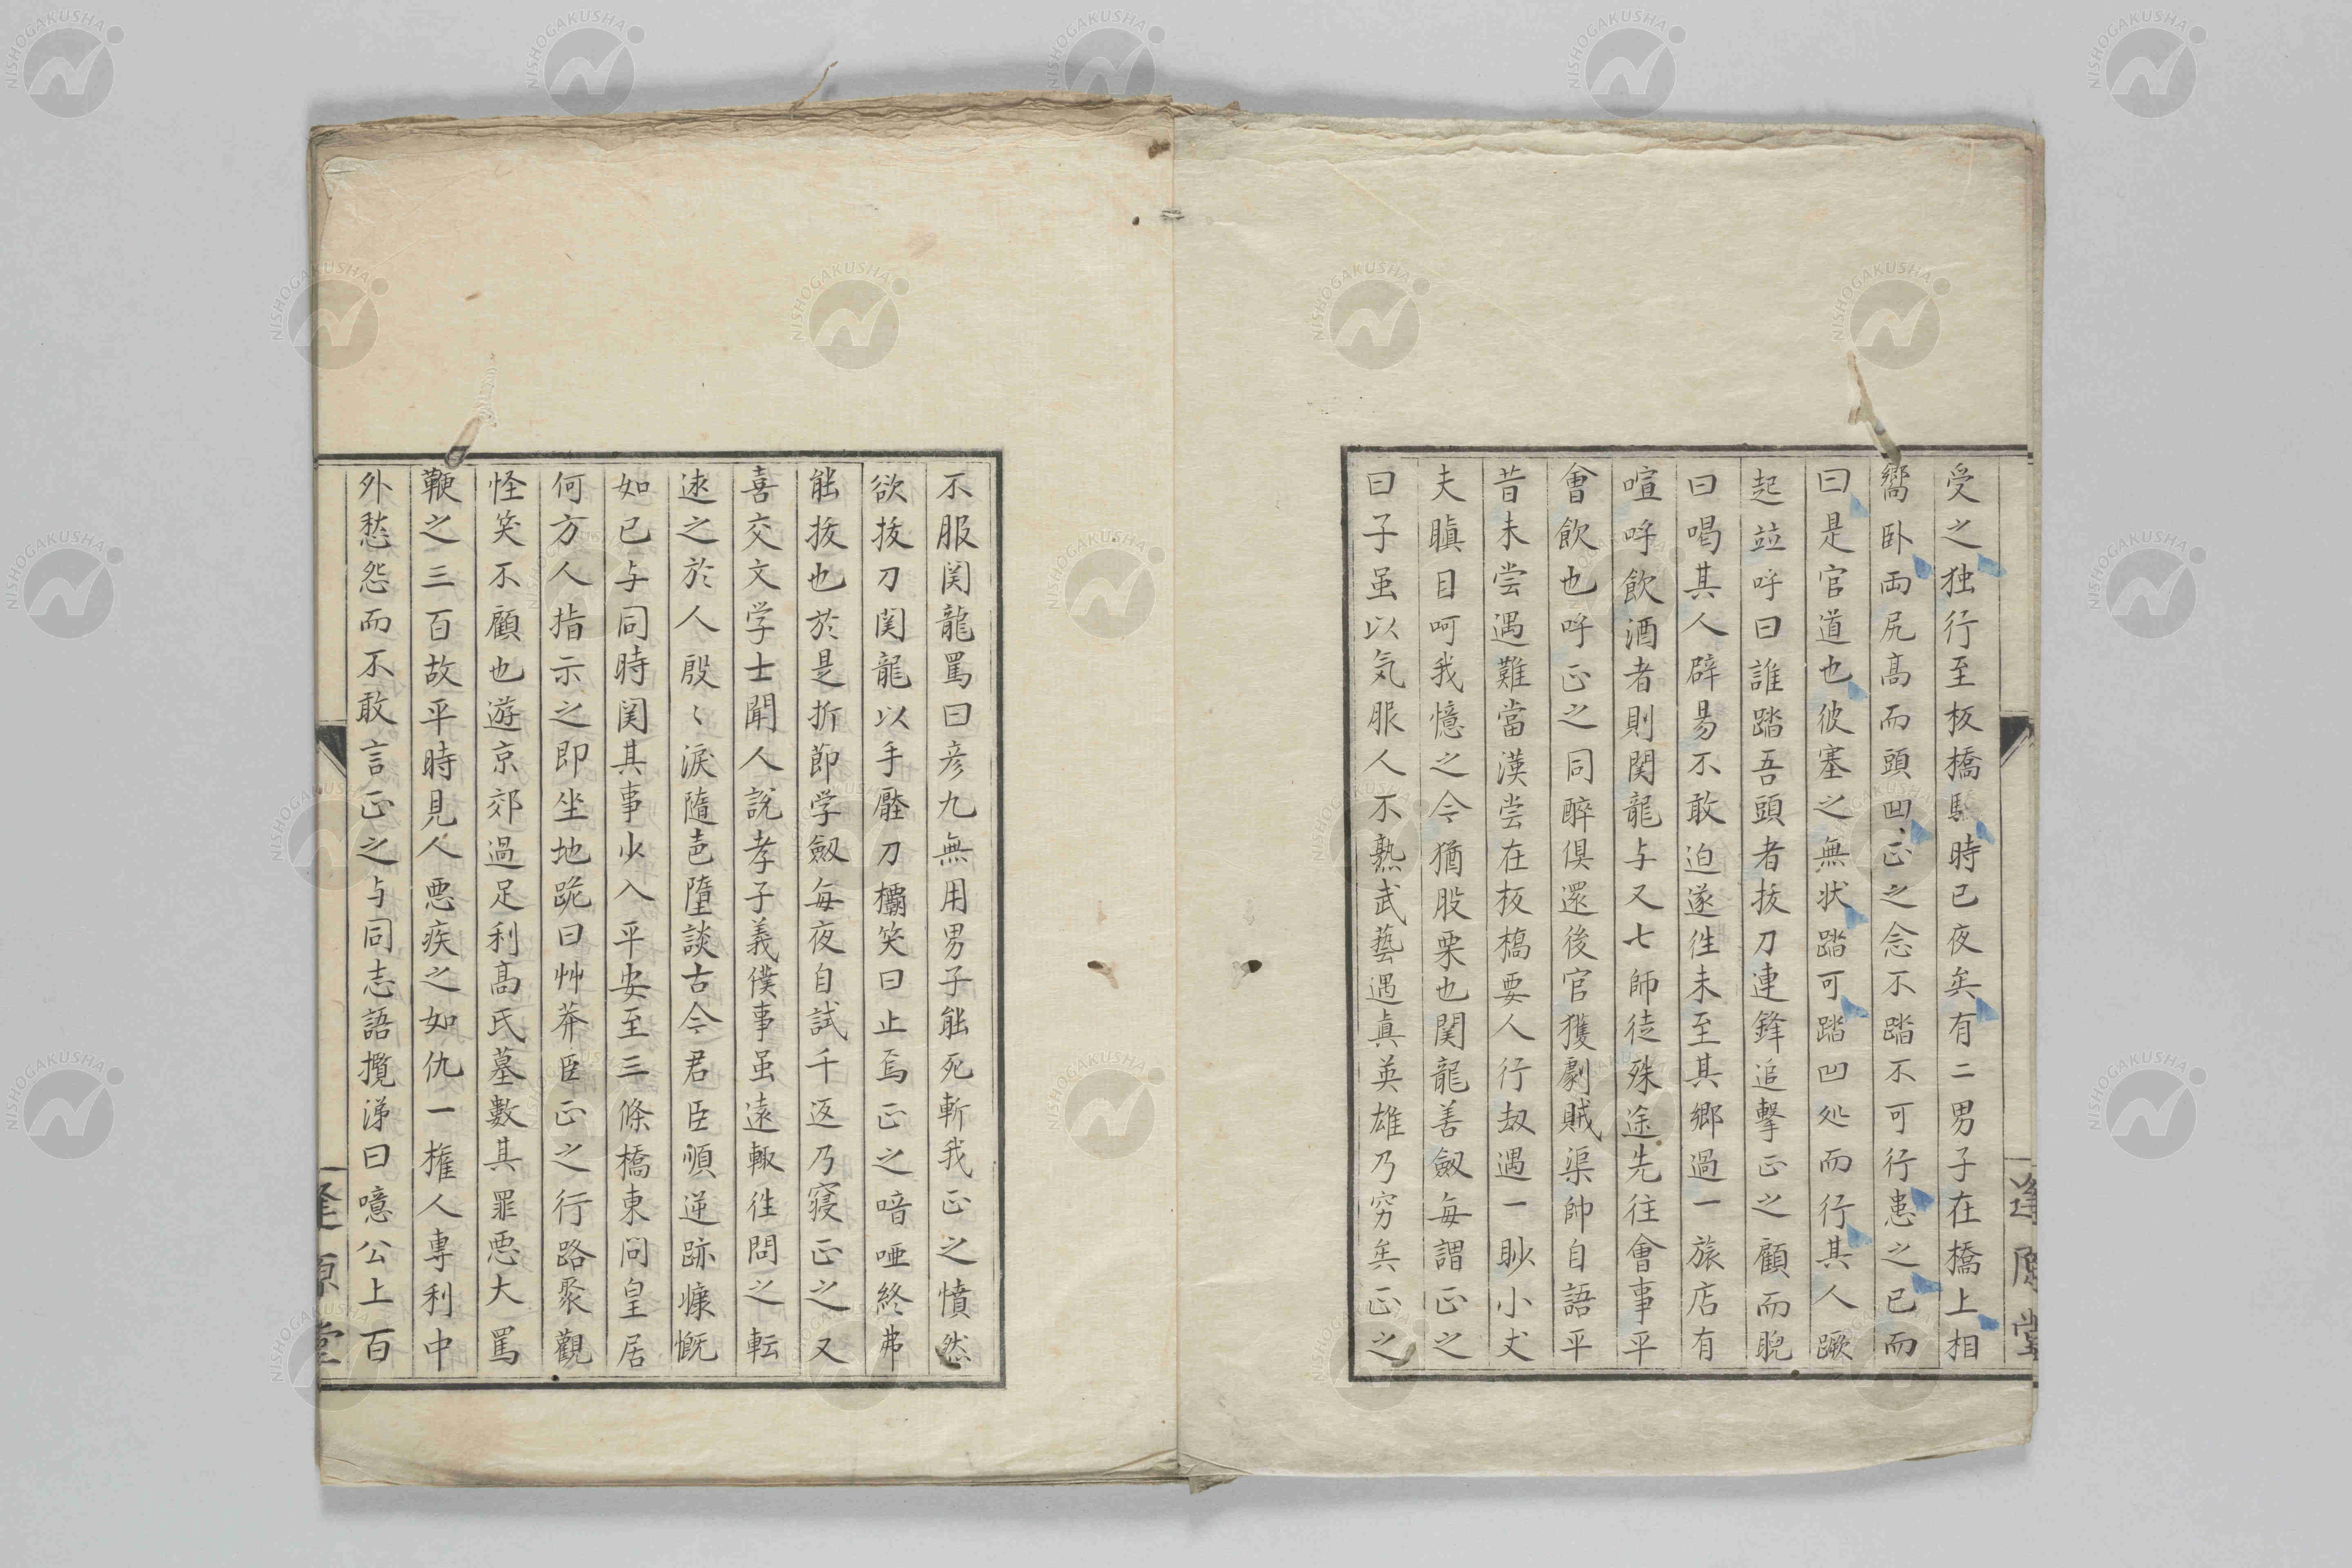 受之独行至板橋驛時已夜矣有二男子在橋上相
嚮卧両尻高而頭凹正之念不踏不可行患之已而
曰是官道也彼塞之無状踏可踏凹処而行其人蹶
起竝呼曰誰踏吾頭者抜刀連鋒追撃正之顧而睨
曰喝其人辟易不敢迫遂徃未至其郷過一旅店有
喧呼飲酒者則関龍与又七師徒殊途先往會事平
會飲也呼正之同酔倶還後官獲劇賊渠帥自語平
昔未嘗遇難當漢嘗在板橋要人行劫遇一眇小丈
夫瞋目呵我憶之今猶股栗也関龍善劔毎謂正之
曰子虽以気服人不熟武藝遇真英雄乃穷矣正之
不服関龍罵曰彦九無用男子能死斬我正之憤然
欲抜刀関龍以手壓刀欛笑曰止焉正之喑唖終弗
能抜也於是折節学劔毎夜自試千返乃寝正之又
喜交文学士聞人說孝子義僕事虽遠輙徃問之転
逑之於人殷〻淚隨邑墮談古今君臣順逆跡慷慨
如已与同時関其事少入平安至三條橋東问皇居
何方人指示之即坐地跪曰艸莽臣正之行路聚觀
怪笑不顧也遊京郊過足利高氏墓數其罪悪大罵
鞭之三百故平時見人悪疾之如仇一権人專利中
外愁怨而不敢言正之与同志語攬涕曰噫公上百
逢原堂
逢原堂